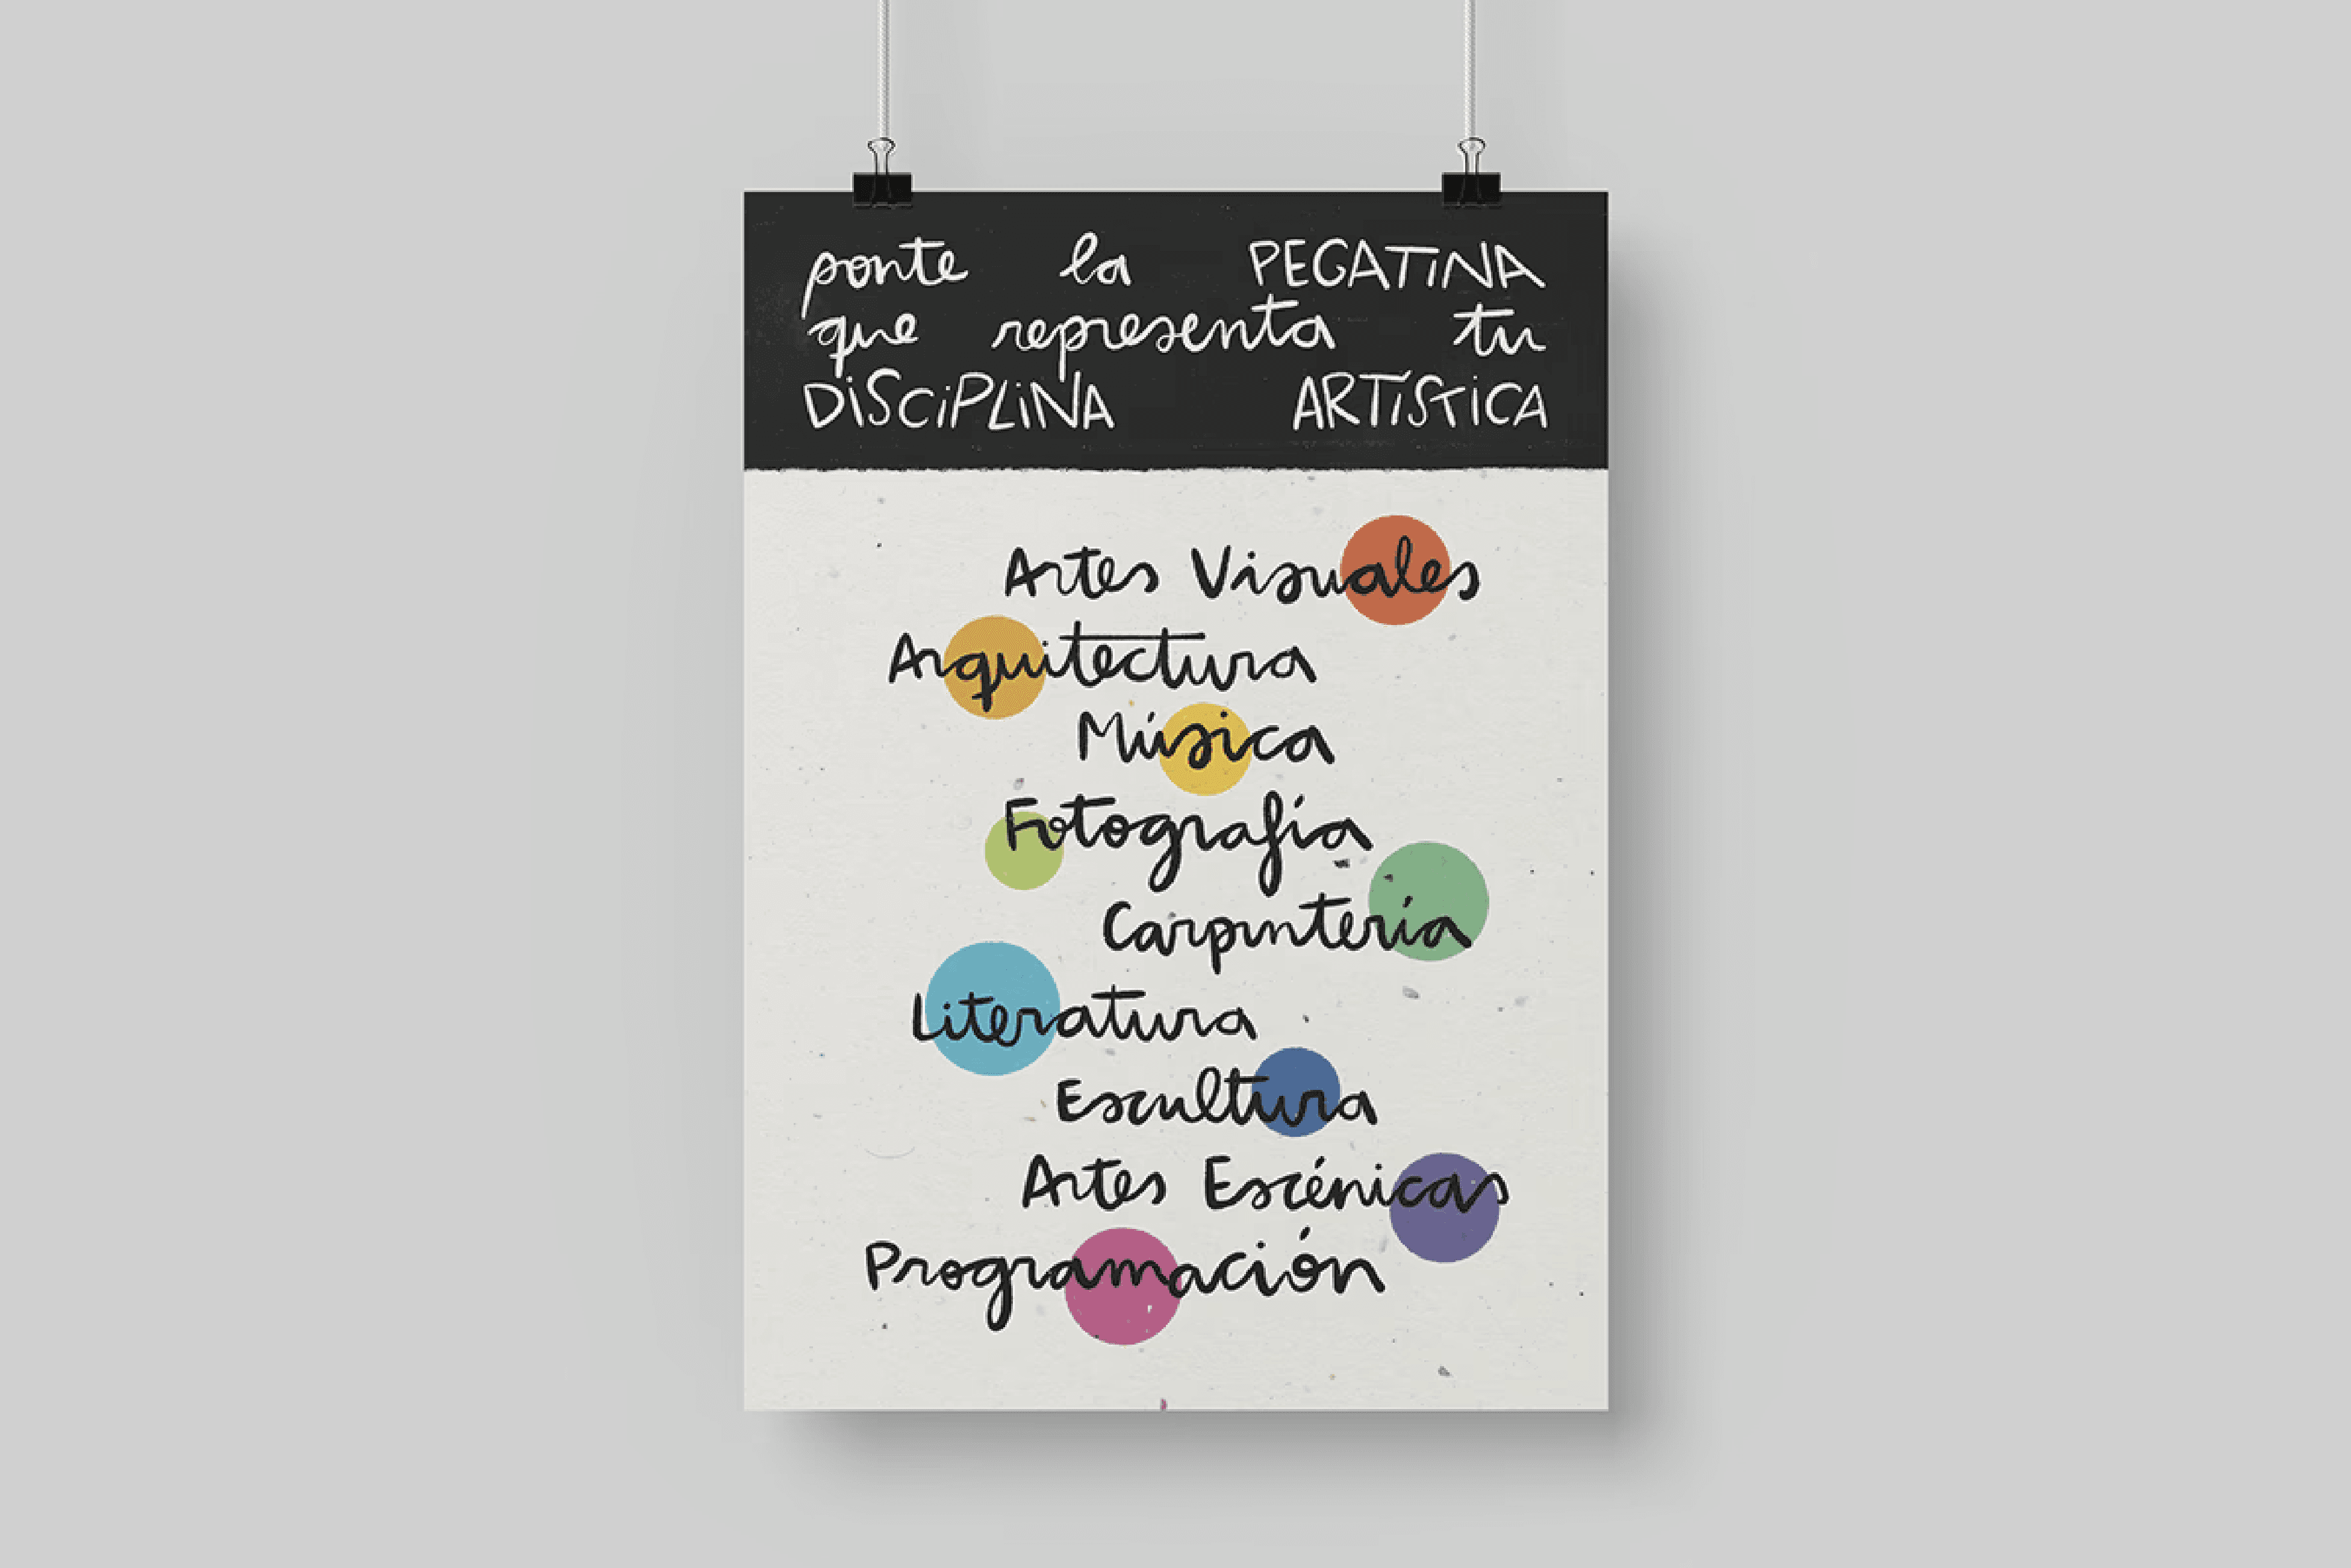 ponte la PEGATINA
que representa tu
DISCIPLINA ARTÍSTICA
Artes Visuales
Arquitectura
Música
Fotografía
Carpintería
Literatura
Escultura
Artes Escénicas
Programación